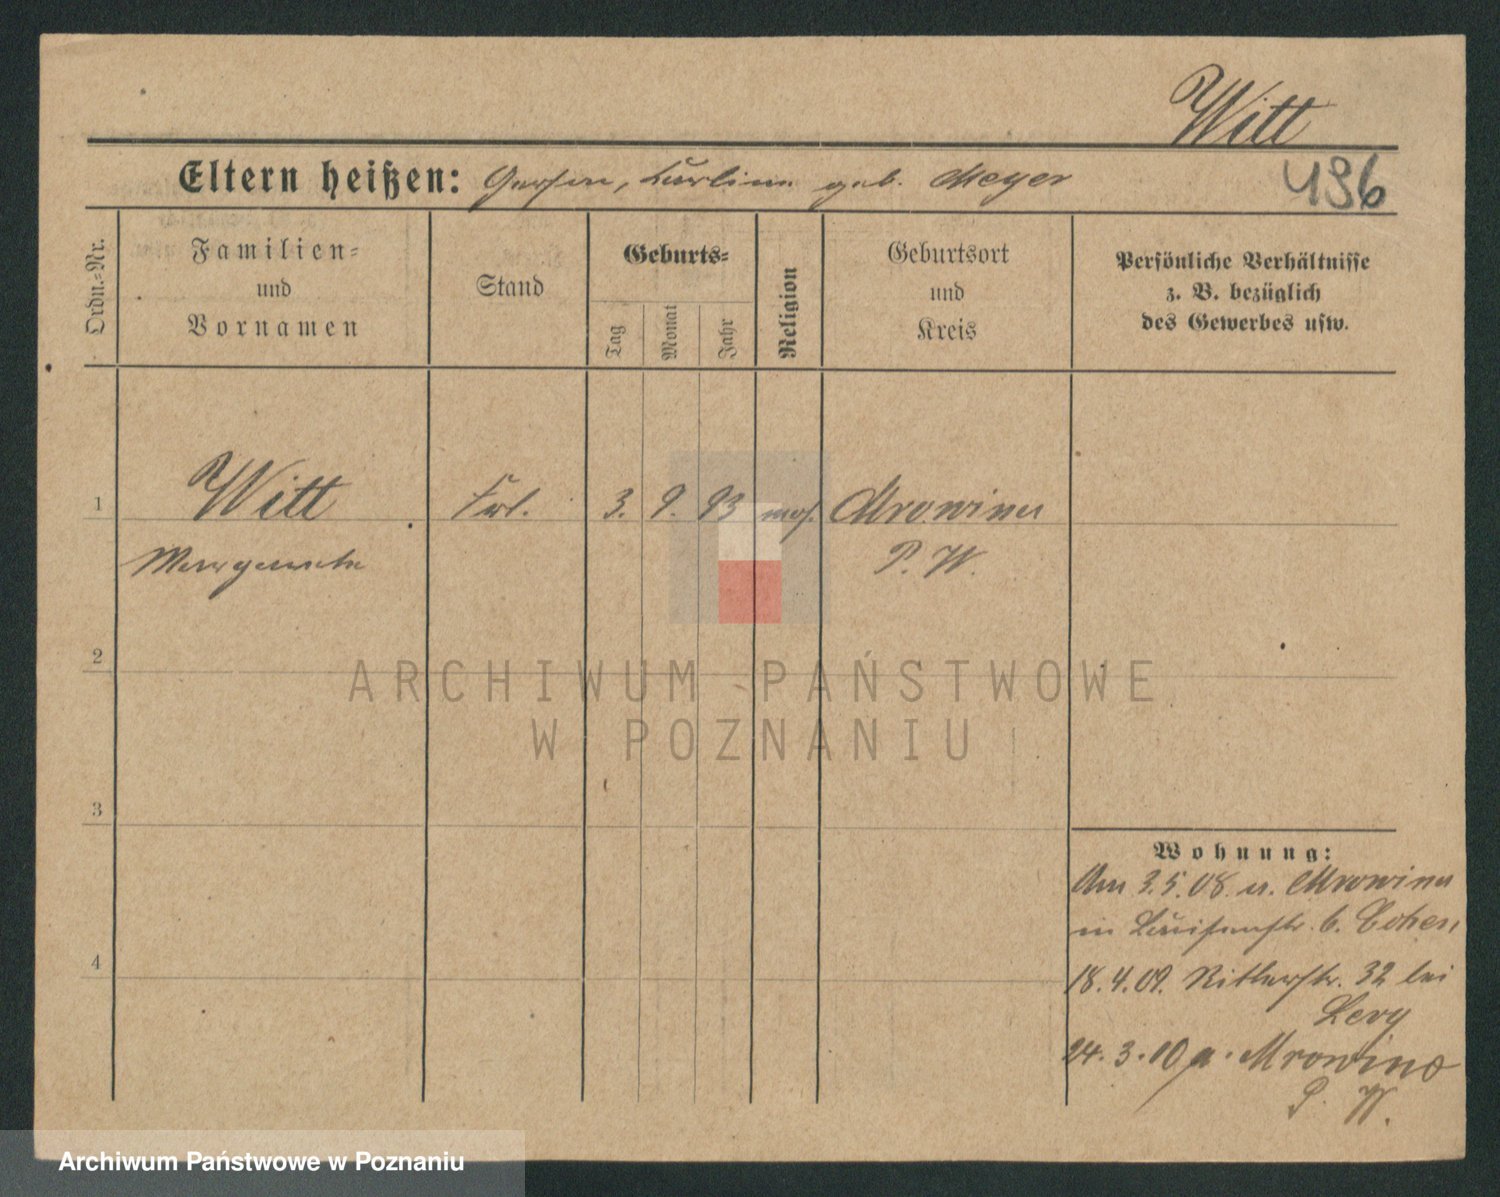 Witt
Eltern heißen: Gerson, Pauline geb. Meyer
496
Ordn.-Nr.
Familien-
und
Vornamen
Stand
Geburts-
Tag
Monat
Jahr
Religion
Geburtsort
und
Kreis
Persönliche Verhältnisse
z. B. bezüglich
des Gewerbes usw.
1
Witt
Margarete
Frl.
3. 9. 93
mos.
Mrowino
P. W.
2
ARCHIWUM PAŃSTWOWE
W POZNANIU
3
4
Wohnung:
Am 3.5.08. v. Mrowino
in Luisenstr. 6. Cohen
18.4.09. Ritterstr. 32 bei
Levy
24.3.10 n. Mrowino
P. W.
Archiwum Państwowe w Poznaniu